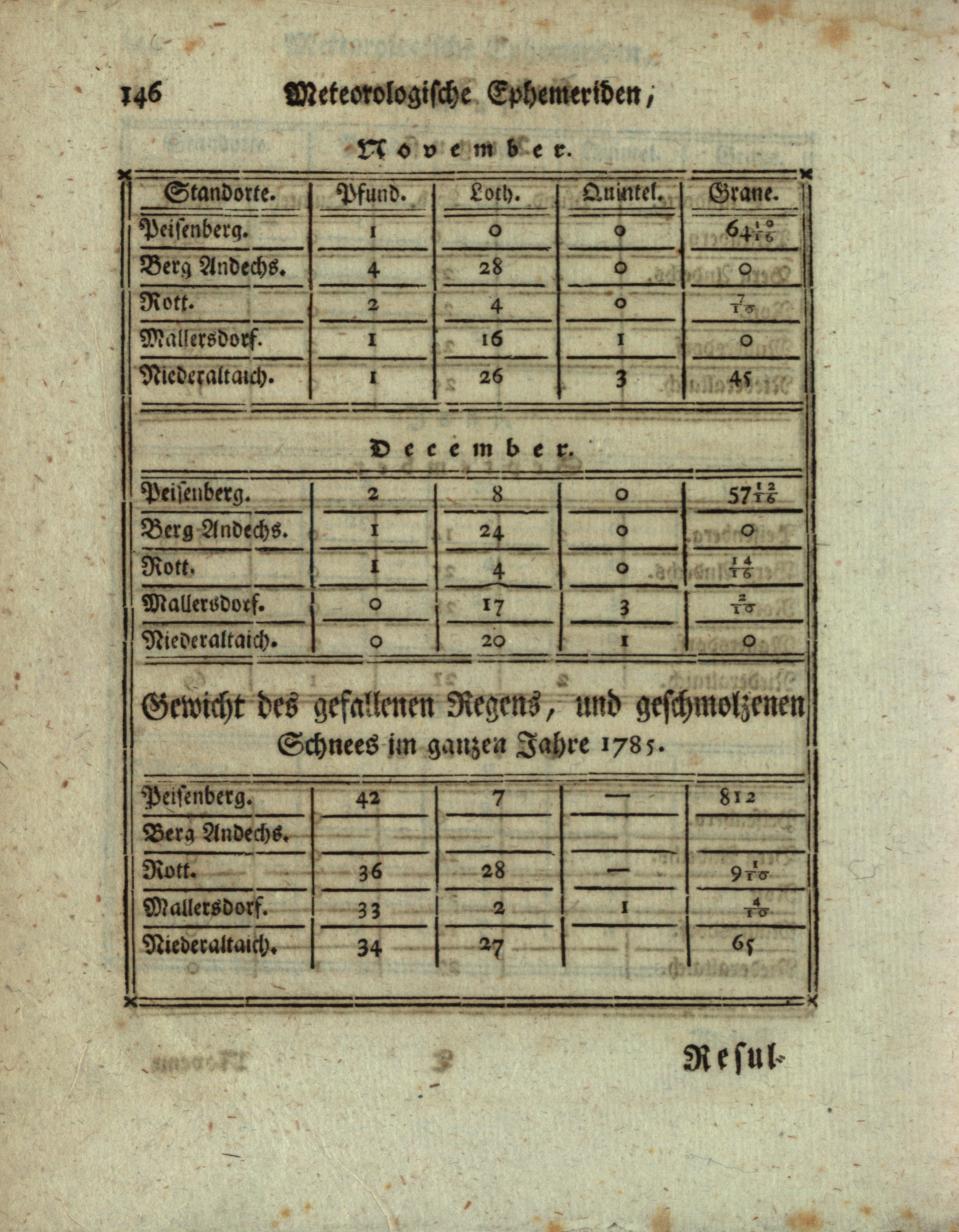 146 Meteorologische Ephemeriden,
November.
Standorte. Pfund. Loth. Quintel. Grane.
Peisenberg. 1 0 0 64 10/16
Berg Andechs. 4 28 0 0
Rott. 2 4 0 7/10
Mallersdorf. 1 16 1 0
Niederaltaich. 1 26 3 45
December.
Peisenberg. 2 8 0 57 12/16
Berg Andechs. 1 24 0 0
Rott. 1 4 0 14/16
Mallersdorf. 0 17 3 2/10
Niederaltaich. 0 20 1 0
Gewicht des gefallenen Regens, und geschmolzenen
Schnees im ganzen Jahre 1785.
Peisenberg. 42 7 — 812
Berg Andechs.
Rott. 36 28 — 9 1/10
Mallersdorf. 33 2 1 4/10
Niederaltaich. 34 27 65
Resul-